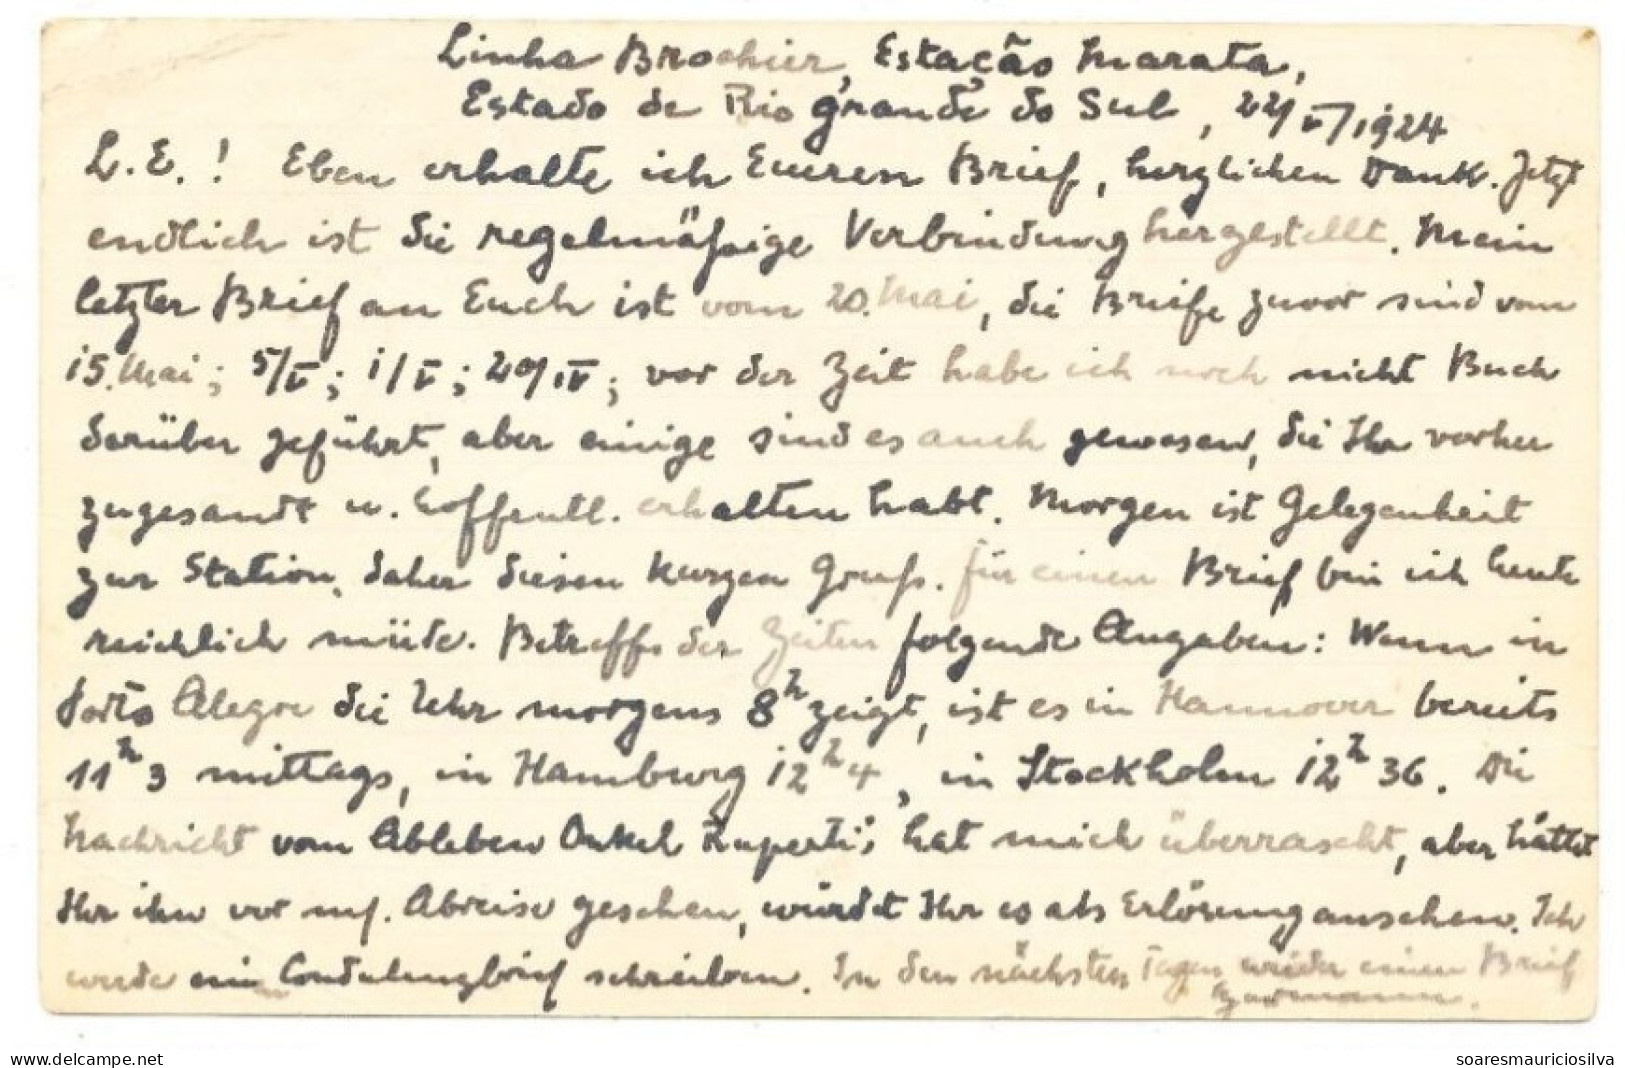 Linha Brochier, Estação Marata,
Estado de Rio grande do Sul, 22/V/1924
L. E.! Eben erhalte ich Eueren Brief, herzlichen Dank. Jetzt
endlich ist die regelmäßige Verbindung hergestellt. Mein
letzter Brief an Euch ist vom 20. Mai, die Briefe zuvor sind vom
15. Mai; 5/V; 1/V; 20/IV; vor der Zeit habe ich noch nicht Buch
darüber geführt, aber einige sind es auch gewesen, die Ihr vorher
zugesandt u. hoffentl. erhalten habt. Morgen ist Gelegenheit
zur Station, daher diesen kurzen Gruß. Für einen Brief bin ich heute
reichlich müde. Betreffs der Zeiten folgende Angaben: Wenn in
Porto Alegre die Uhr morgens 8h zeigt, ist es in Hannover bereits
11h 3 mittags, in Hamburg 12h 4, in Stockholm 12h 36. Die
Nachricht vom Ableben Onkel Ruperti's hat mich überrascht, aber hättet
Ihr ihn vor m. Abreise gesehen, würdet Ihr es als Erlösung ansehen. Ich
werde ein Condulenzbrief schreiben. In den nächsten Tagen wieder einen Brief
Hermann.
www.delcampe.net
soaresmauriciosilva